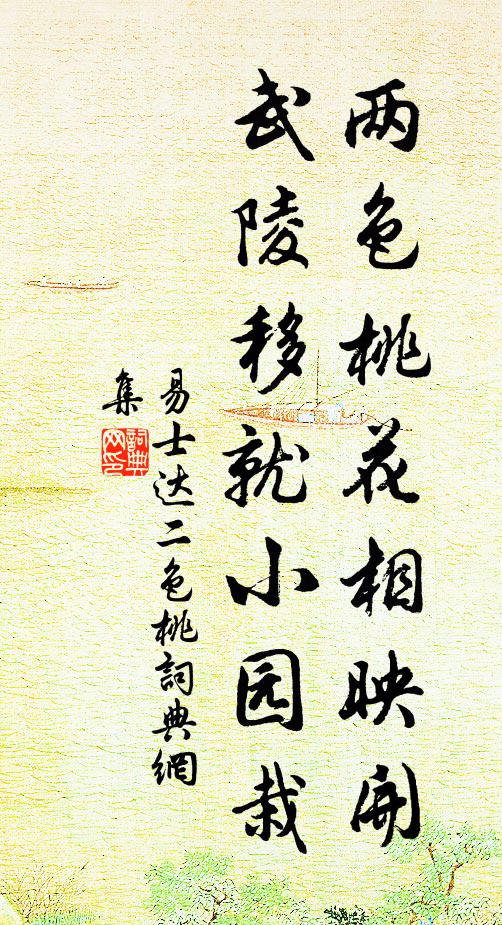 两色桃花相映開
武陵移就小园栽
易士达二色桃詞典網
集
詞典
网印